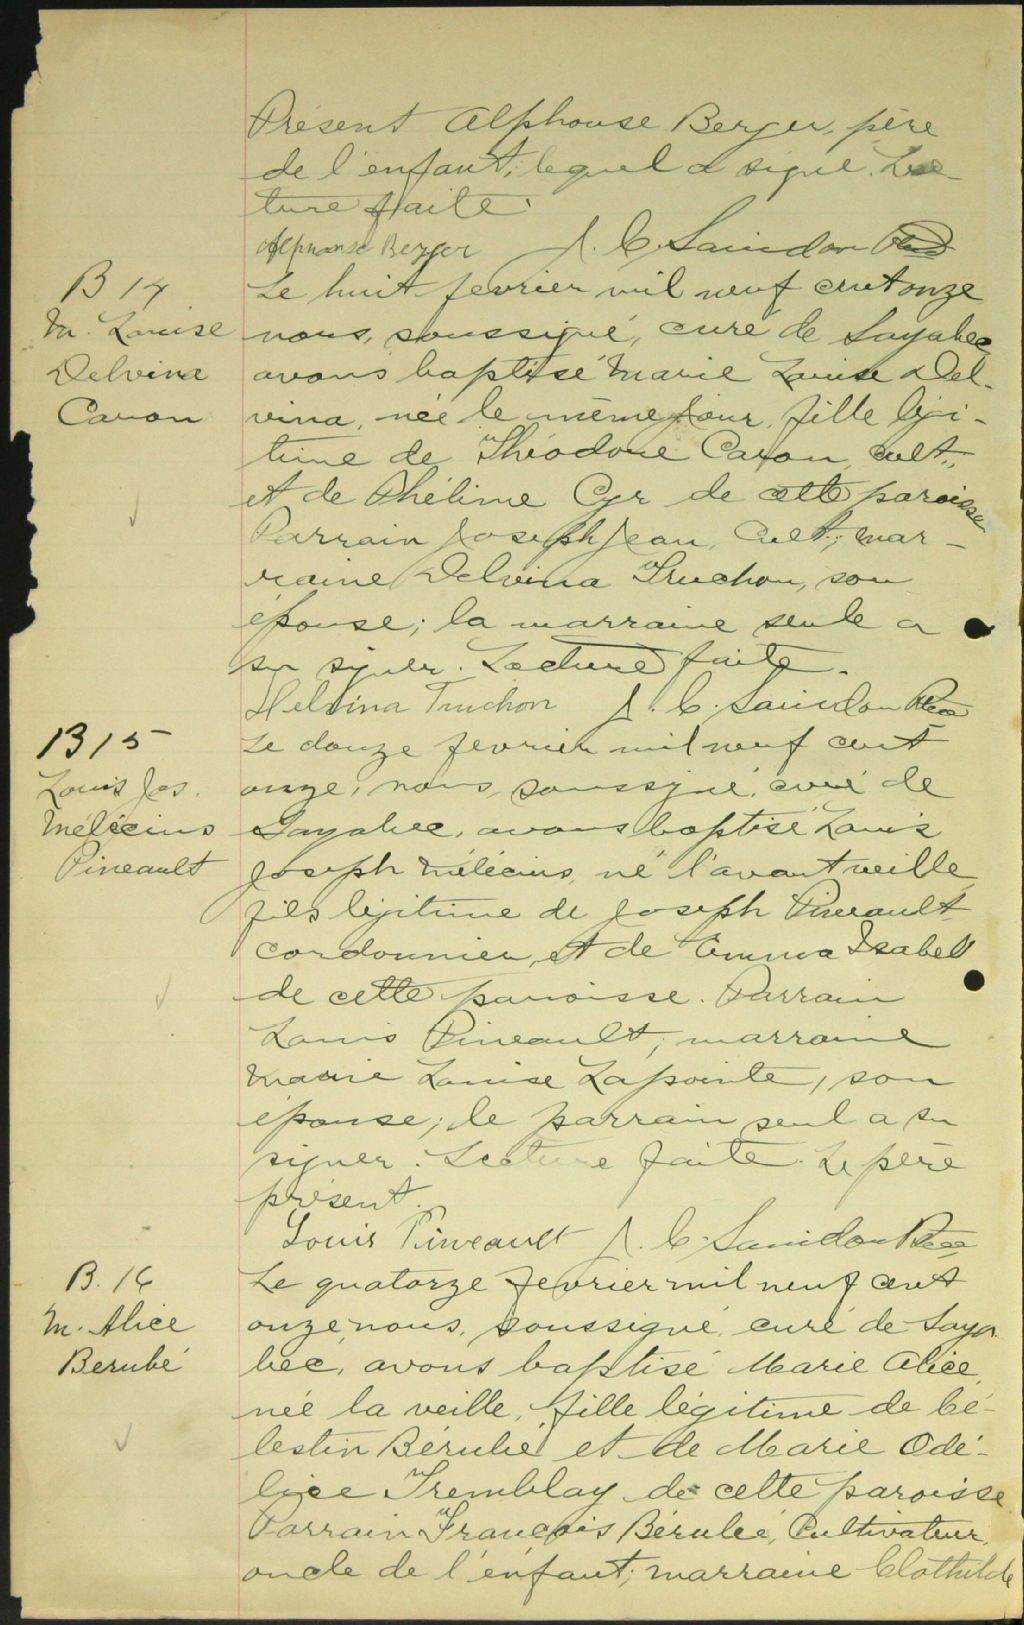 Présent Alphonse Berger, père
de l'enfant, lequel a signé. Lec-
ture faite.
Alphonse Berger J. C. Saindon Ptre
B 14
M. Louise
Delvina
Caron
Le huit fevrier mil neuf cent onze
nous, soussigné, curé de Sayabec
avons baptisé Marie Louise Del-
vina, née le même jour, fille légi-
time de Théodore Caron, cult.,
et de Phélime Cyr de cette paroisse
Parrain Joseph Jean, Cult.; mar-
raine Delvina Truchon, son
épouse; la marraine seule a
su signer. Lecture faite.
Delvina Truchon J. C. Saindon Ptre
B 15
Louis Jos.
Mélécius
Pineault
Le douze fevrier mil neuf cent
onze, nous, soussigné, curé de
Sayabec, avons baptisé Louis
Joseph Mélécius, né l'avant veille,
fils légitime de Joseph Pineault
cordonnier, et de Emma Isabel
de cette paroisse. Parrain
Louis Pineault; marraine
Marie Louise Lapointe, son
épouse; le parrain seul a su
signer. Lecture faite. Le père
présent.
Louis Pineault J. C. Saindon Ptre
B. 16
M. Alice
Berubé
Le quatorze fevrier mil neuf cent
onze nous, soussigné, curé de Saya
bec, avons baptisé Marie Alice,
née la veille, fille légitime de Cé-
lestin Bérubé et de Marie Odé-
lice Tremblay de cette paroisse
Parrain François Bérubé, Cultivateur,
oncle de l'enfant; marraine Clothilde